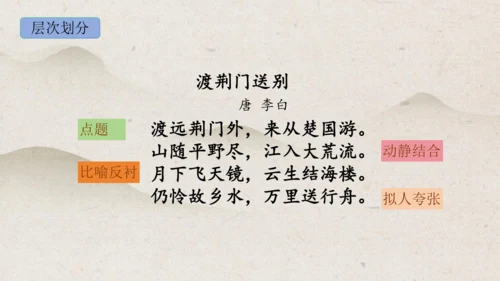 层次划分
渡荆门送别
唐 李白
点题
渡远荆门外，来从楚国游。
山随平野尽，江入大荒流。
动静结合
比喻反衬
月下飞天镜，云生结海楼。
仍怜故乡水，万里送行舟。
拟人夸张